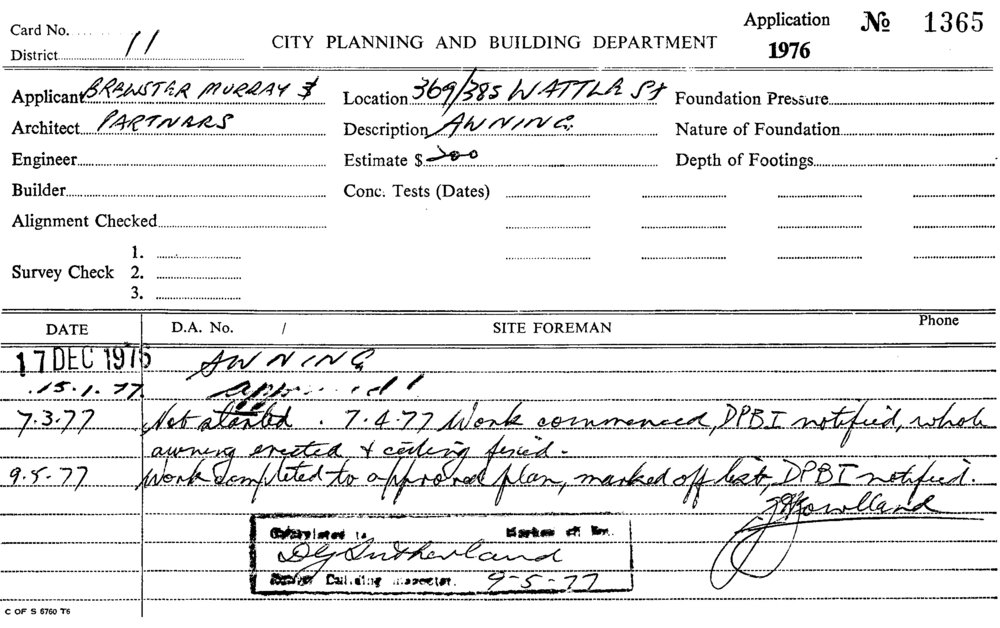 Card No.
Application № 1365
District 11
CITY PLANNING AND BUILDING DEPARTMENT
1976
Applicant BREWSTER MURRAY &
Location 369/385 WATTLE St
Foundation Pressure
Architect PARTNARS
Description AWNING
Nature of Foundation
Engineer
Estimate $ 200
Depth of Footings
Builder
Conc. Tests (Dates)
Alignment Checked
Survey Check
1.
2.
3.
DATE
D.A. No. /
SITE FOREMAN
Phone
17 DEC 1976 AWNING
15.1.77
7.3.77 Not started. 7.4.77 Work commenced, DPBI notified, whole
awning erected & ceiling fixed.
9.5.77 Work completed to approved plan, marked off list, DPBI notified.
DG Sutherland
Building Inspector. 9-5-77
C OF S 6760 T6